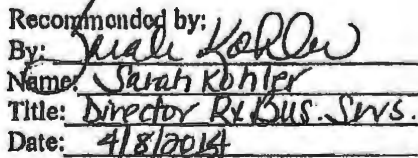 Recommended by:
By: Sarah Kohler
Name: Sarah Kohler
Title: Director Rx Bus. Srvs.
Date: 4/8/2014